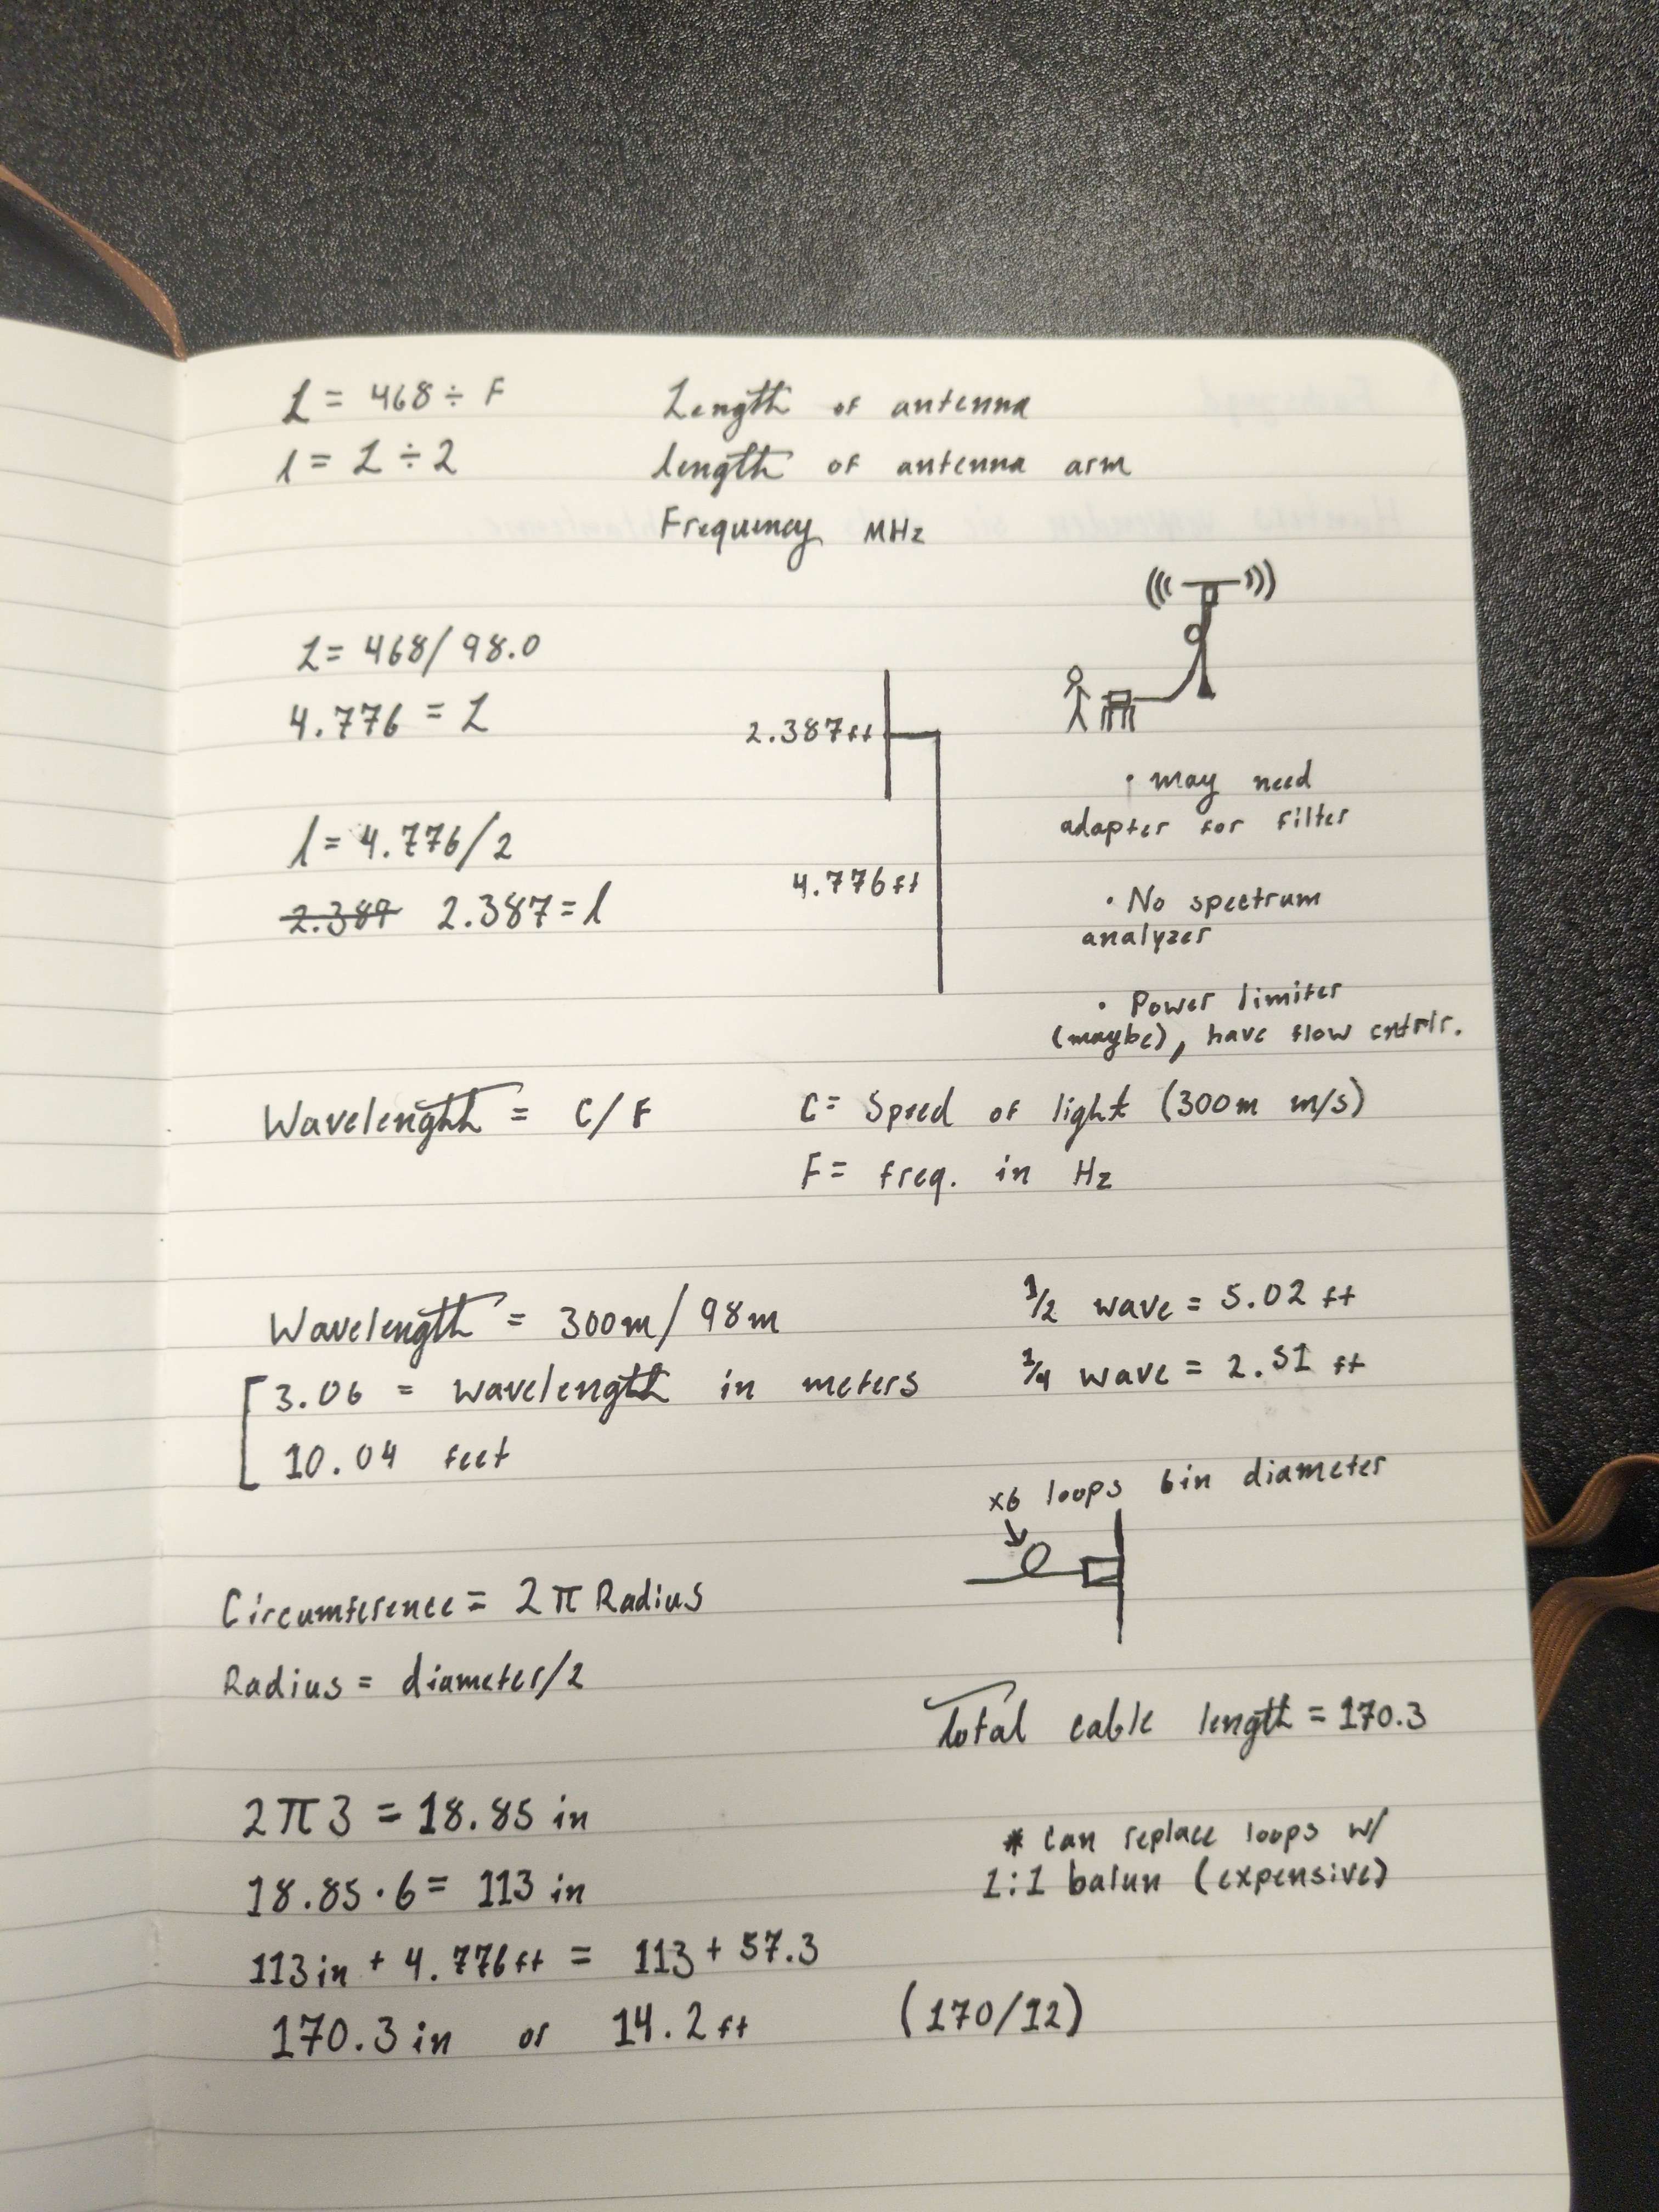 L = 468 ÷ F Length of antenna
l = L ÷ 2 length of antenna arm
Frequency MHz
L = 468 / 98.0
4.776 = L
2.387 ft
l = 4.776 / 2
4.776 ft
2.389 2.387 = l
• may need
adapter for filter
• No spectrum
analyzer
• Power limiter
(maybe), have flow cntrlr.
Wavelength = C/F C = Speed of light (300m m/s)
F = freq. in Hz
Wavelength = 300m / 98m
3.06 = wavelength in meters
10.04 feet
1/2 wave = 5.02 ft
1/4 wave = 2.51 ft
x6 loops 6in diameter
Circumference = 2 π Radius
Radius = diameter/2
Total cable length = 170.3
2π3 = 18.85 in
18.85 · 6 = 113 in
113 in + 4.776 ft = 113 + 57.3
170.3 in or 14.2 ft (170/12)
* can replace loops w/
1:1 balun (expensive)